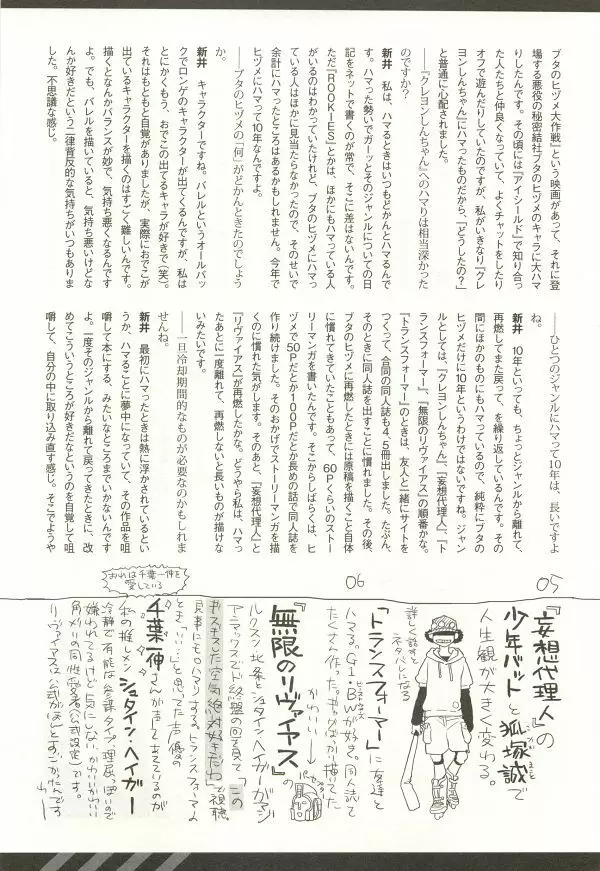 ブタのヒヅメ大作戦』という映画があって、それに登
場する悪役の秘密結社ブタのヒヅメのキャラに大ハマ
りしたんです。その頃には『アイシールド』で知り合っ
た人たちと仲良くなっていて、よくチャットをしたり
オフで遊んだりしていたのですが、私がいきなり『クレ
ヨンしんちゃん』にハマったものだから、「どうしたの?」
と普通に心配されました。
――『クレヨンしんちゃん』へのハマりは相当深かった
のですか?
新井 私は、ハマるときはいつもどかんとハマるんで
す。ハマった勢いでガーッとそのジャンルについての日
記をネットで書くのが常で、そこに差はないんです。
ただ『ROOKIES』とかは、ほかにもハマっている人
がいるのはわかっていたけれど、ブタのヒヅメにハマっ
ている人はほかに見当たらなかったので、そのせいで
余計にハマったところはあるかもしれません。今年で
ヒヅメにハマって10年なんですよ。
――ブタのヒヅメの「何」がどかんときたのでしょう
か。
新井 キャラクターですね。バレルというオールバッ
クでロンゲのキャラクターが出てくるんですが、私は
とにかくもう、おでこの出てるキャラが好きで(笑)。
それはもともと自覚がありましたが、実際におでこが
出ているキャラクターを描くのはすごく難しいんです。
描くとなんかバランスが妙で、気持ち悪くなるんです
よ。でも、バレルを描いていると、気持ち悪いけどな
んか好きだという二律背反的な気持ちがいつもありま
した。不思議な感じ。
――ひとつのジャンルにハマって10年は、長いですよ
ね。
新井 10年といっても、ちょっとジャンルから離れて、
再燃してまた戻って、を繰り返しているんです。その
間にほかのものにもハマっているので、純粋にブタの
ヒヅメだけに10年というわけではないですね。ジャン
ルとしては、『クレヨンしんちゃん』、『妄想代理人』、『ト
ランスフォーマー』、『無限のリヴァイアス』の順番かな。
『トランスフォーマー』のときは、友人と一緒にサイトを
つくって、合同の同人誌も4、5冊出しました。たぶん、
そのときに同人誌を出すことに慣れました。その後、
ブタのヒヅメに再燃したときには原稿を描くこと自体
に慣れてきていたこともあって、60Pくらいのストー
リーマンガを書いたんです。そこからしばらくは、ヒ
ヅメで50Pだとか100Pだとか長めの話で同人誌を
作り続けました。そのおかげでストーリーマンガを描
くのに慣れた気がします。そのあと、『妄想代理人』と
『リヴァイアス』が再燃したかな。どうやら私は、ハマっ
たあとに一度離れて、再燃しないと長いものが描けな
いみたいです。
――一旦冷却期間的なものが必要なのかもしれま
せんね。
新井 最初にハマったときは熱に浮かされているとい
うか、ハマることに夢中になっていて、その作品を咀
嚼して本にする、みたいなところまでいかないんです
よ。一度そのジャンルから離れて戻ってきたときに、改
めてこういうところが好きだなというのを自覚して咀
嚼して、自分の中に取り込み直す感じ。そこでようや
05
『妄想代理人』の
少年バットと狐塚誠で
こづか まこと
人生観が大きく変わる。
詳しく話すと
ネタバレになる
06
「トランスフォーマー」に友達と
ハマる。G1・BWが好き。同人誌て
ビーストウォーズ
たくさん作った。
かわいい→
『無限のリヴァイアス』の
ルクスン・北条とシュタイン・ヘイガーがラジ
アニマックスでド終盤の回を見て「この
ギスギスした空気絶対好きだわ」で視聴。
見事にモロハマりする。トランスフォーマーの
とき「いい…」と思ってた声優の
千葉一伸さんが声をあてているのが
私の推しメン シュタイン・ヘイガー
冷静で有能な参謀タイプ。理屈っぽいので
嫌われてるけど気にしない。かわいいかわいい
角メリの同性愛者(公式設定)です。
リヴァイアスは公式がほんとすごかったんです
おれは千葉一伸を
愛している